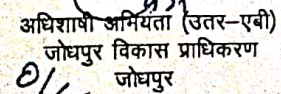 अधिशाषी अभियंता (उतर–एबी)
जोधपुर विकास प्राधिकरण
जोधपुर